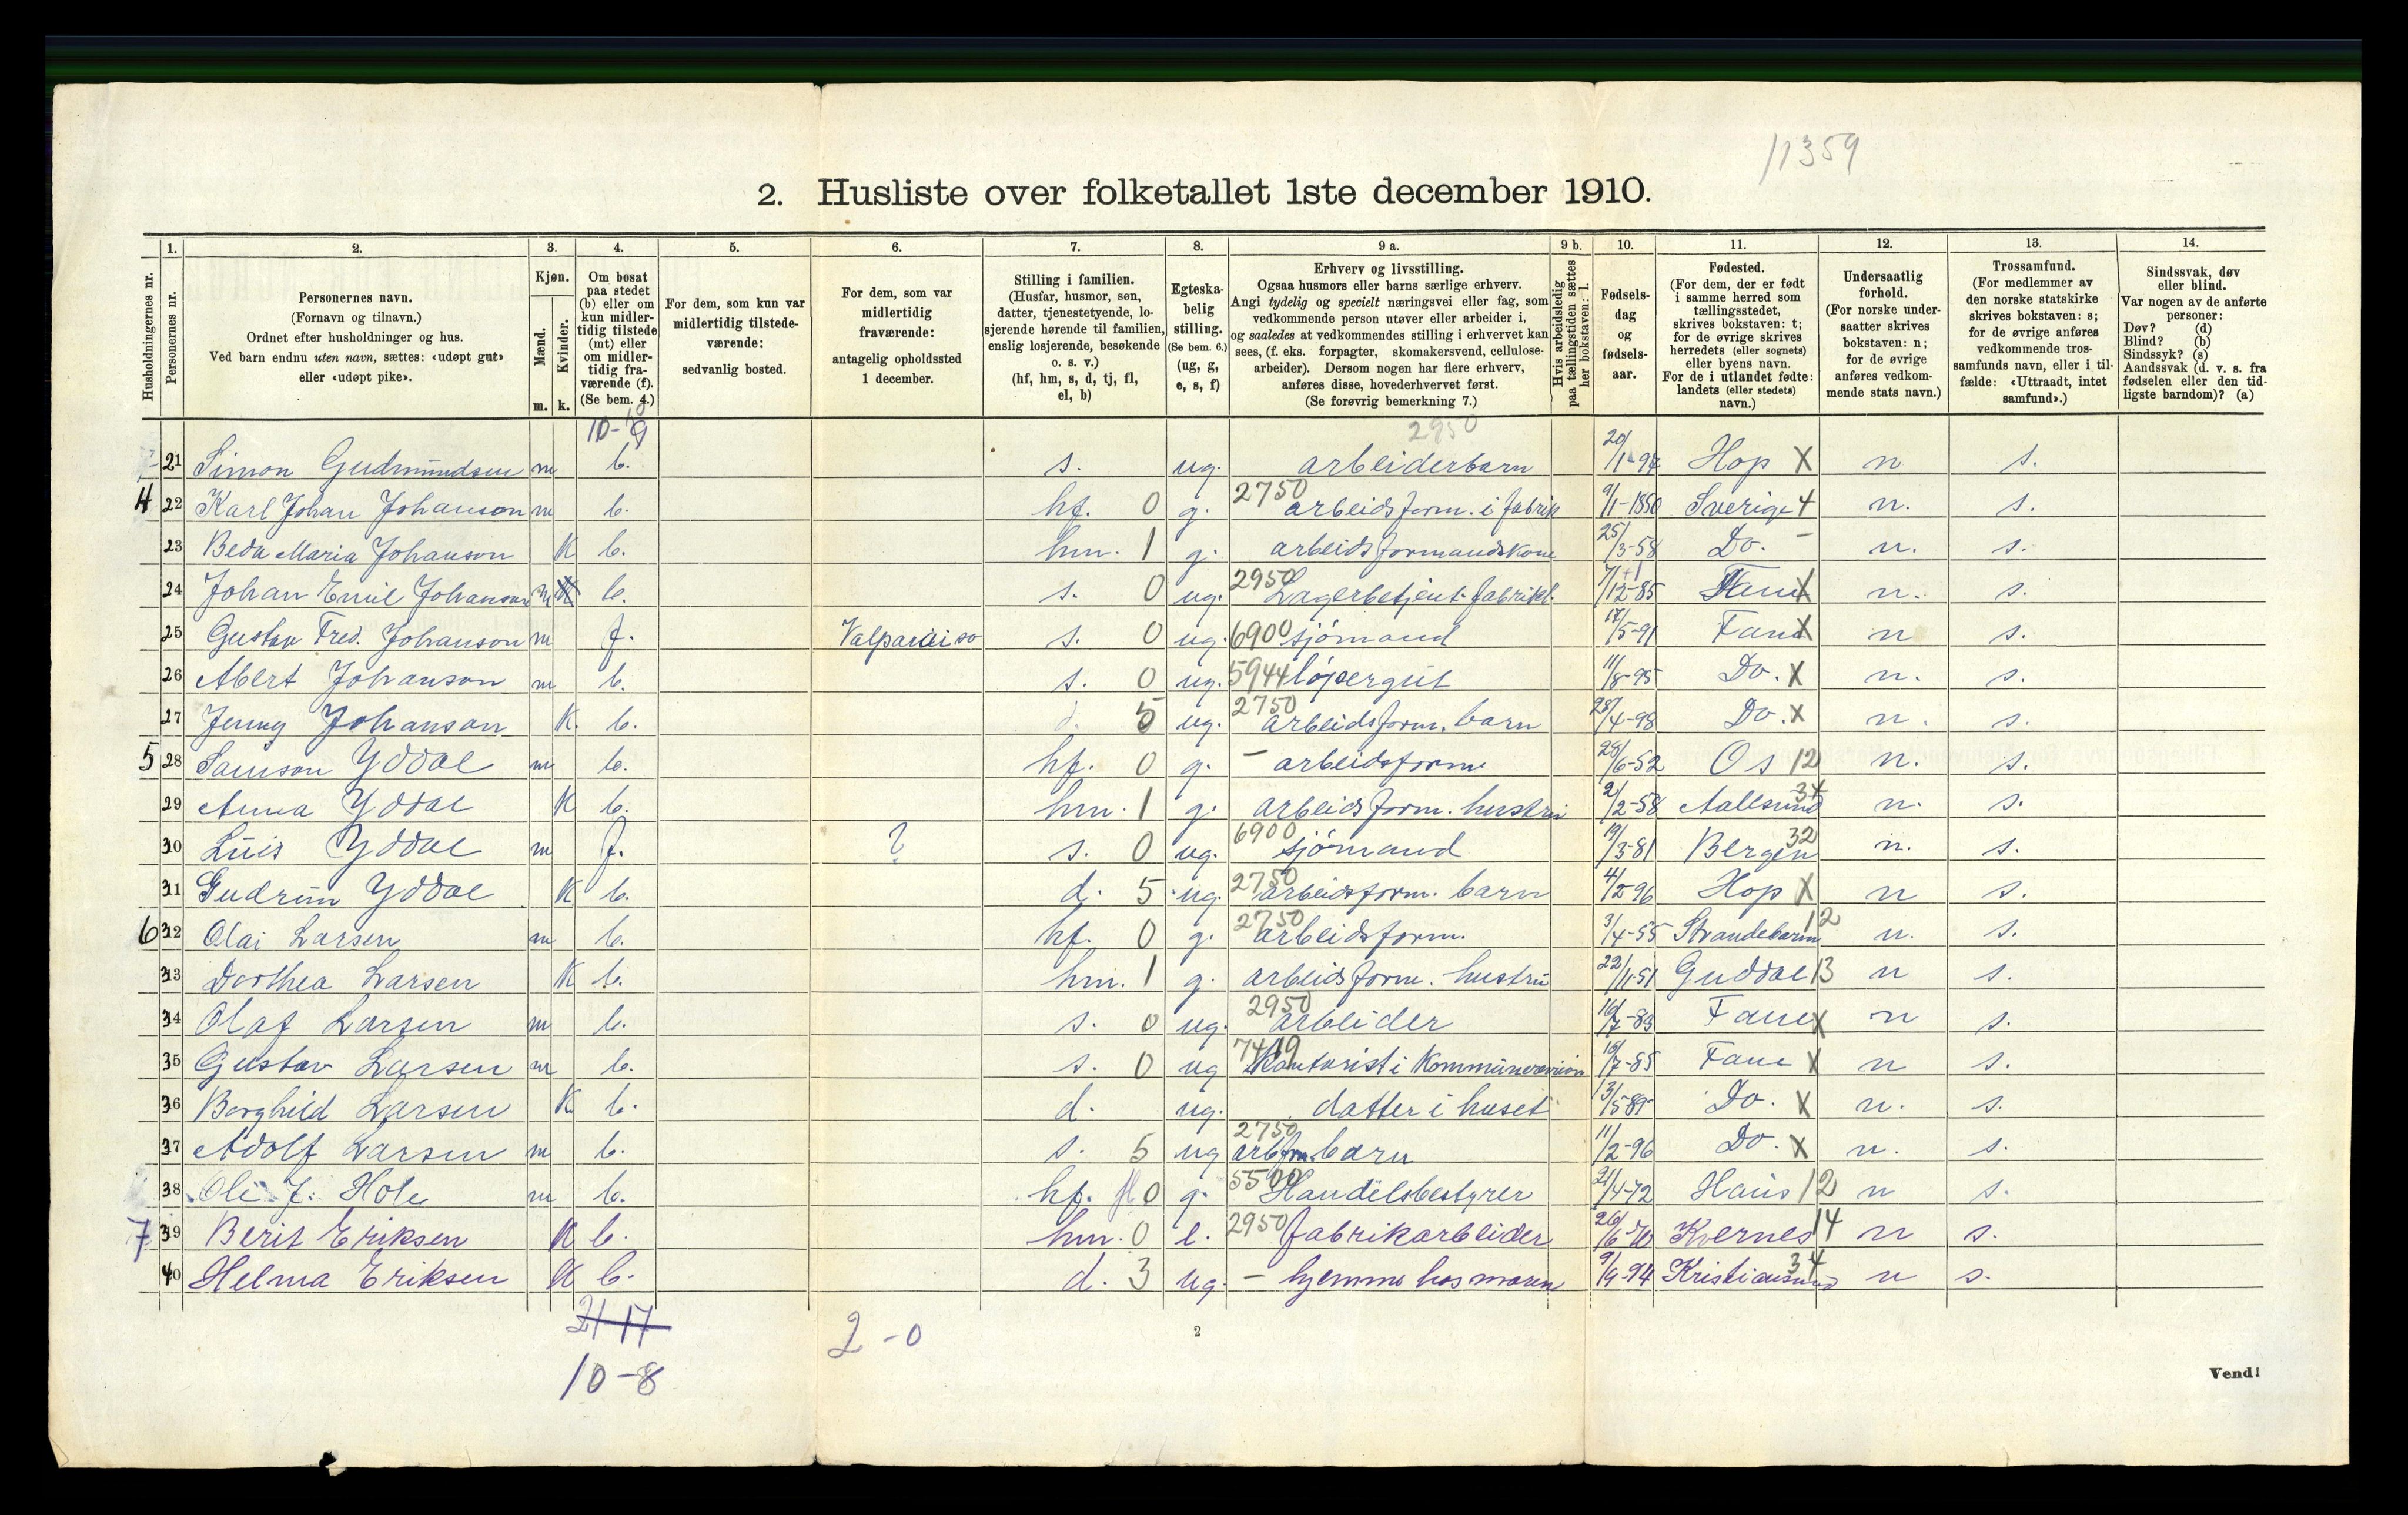 11359
2. Husliste over folketallet 1ste december 1910.
Husholdningernes nr.
1.
Personernes nr.
2.
Personernes navn.
(Fornavn og tilnavn.)
Ordnet efter husholdninger og hus.
Ved barn endnu uten navn, sættes: «udøpt gut»
eller «udøpt pike».
3.
Kjøn.
Mænd.
Kvinder.
m. k.
4.
Om bosat
paa stedet
(b) eller om
kun midler-
tidig tilstede
(mt) eller
om midler-
tidig fra-
værende (f).
(Se bem. 4.)
5.
For dem, som kun var
midlertidig tilstede-
værende:
sedvanlig bosted.
6.
For dem, som var
midlertidig
fraværende:
antagelig opholdssted
1 december.
7.
Stilling i familien.
(Husfar, husmor, søn,
datter, tjenestetyende, lo-
sjerende hørende til familien,
enslig losjerende, besøkende
o. s. v.)
(hf, hm, s, d, tj, fl,
el, b)
8.
Egteska-
belig
stilling.
(Se bem. 6.)
(ug, g,
e, s, f)
9 a.
Erhverv og livsstilling.
Ogsaa husmors eller barns særlige erhverv.
Angi tydelig og specielt næringsvei eller fag, som
vedkommende person utøver eller arbeider i,
og saaledes at vedkommendes stilling i erhvervet kan
sees, (f. eks. forpagter, skomakersvend, cellulose-
arbeider). Dersom nogen har flere erhverv,
anføres disse, hovederhvervet først.
(Se forøvrig bemerkning 7.)
9 b.
Hvis arbeidsledig
paa tællingstiden sættes
her bokstaven: l.
10.
Fødsels-
dag
og
fødsels-
aar.
11.
Fødested.
(For dem, der er født
i samme herred som
tællingsstedet,
skrives bokstaven: t;
for de øvrige skrives
herredets (eller sognets)
eller byens navn.
For de i utlandet fødte:
landets (eller stedets)
navn.)
12.
Undersaatlig
forhold.
(For norske under-
saatter skrives
bokstaven: n;
for de øvrige
anføres vedkom-
mende stats navn.)
13.
Trossamfund.
(For medlemmer av
den norske statskirke
skrives bokstaven: s;
for de øvrige anføres
vedkommende tros-
samfunds navn, eller i til-
fælde: «Uttraadt, intet
samfund».)
14.
Sindssvak, døv
eller blind.
Var nogen av de anførte
personer:
Døv? (d)
Blind? (b)
Sindssyk? (s)
Aandssvak (d. v. s. fra
fødselen eller den tid-
ligste barndom)? (a)
10-9 2950
21 Simon Gudmundsen m b. s. ug. arbeiderbarn 20/1-97 Hop X n s.
4 22 Karl Johan Johanson m b. hf. 0 g. 2750 arbeidsform. i fabrik 9/1-1850 Sverige 4 n. s.
23 Beda Maria Johanson K b. hm. 1 g. arbeidsformandskone 25/3-58 Do. - n. s.
24 Johan Emil Johanson m b. s. 0 ug. 2950 Lagerbetjent. fabrikk. 7/12-85 Fane X n. s.
25 Gustav Fred. Johanson m f. Valparaiso s. 0 ug. 6900 sjømand 17/5-91 Fane X n s.
26 Abert Johanson m b. s. 0 ug. 5944 løpergut 11/8-95 Do. X n. s.
27 Jenny Johanson K. b. d. 5 ug. 2750 arbeidsform. barn 28/4-98 Do. X n. s.
5 28 Samson Yddal m b. hf. 0 g. - arbeidsform 28/6-52 Os 12 n. s.
29 Anna Yddal K b. hm. 1 g. arbeidsform. hustru 2/2-58 Aalesund 34 n. s.
30 Luis Yddal m f. ? s. 0 ug. 6900 sjømand 19/3-81 Bergen 32 n. s.
31 Gudrun Yddal K b. d. 5 ug. 2750 arbeidsform. barn 4/2 96 Hop X n s.
6 32 Olai Larsen m b. hf. 0 g. 2750 arbeidsform. 3/4-55 Strandebarm 12 n. s.
33 Dorthea Larsen K b. hm. 1 g. arbeidsform. hustru 22/11-51 Guddal 13 n s.
34 Olaf Larsen m b. s. 0 ug. 2950 arbeider 16/7-83 Fane X n s.
35 Gustav Larsen m b. s. 0 ug Kontorist i Kommunerevision 15/7-85 Fane X n s.
36 Borghild Larsen K b. d. ug. datter i huset 13/5 89 Do. X n. s.
37 Adolf Larsen m b. s. 5 ug 2750 arbfm. barn 11/2-96 Do. X n. s.
38 Ole J. Hole m b. hf. 0 g. 5500 Handelsbestyrer 21/4-72 Haus 12 n s.
7 39 Berit Eriksen K b. hm. 0 e. 2950 fabrikarbeider 26/6-70 Kvernes 14 n s.
40 Helma Eriksen K b. d. 3 ug. - hjemme hos moren 9/9-94 Kristiansund 34 n s.
21-17
10-8
2-0
2
Vend!